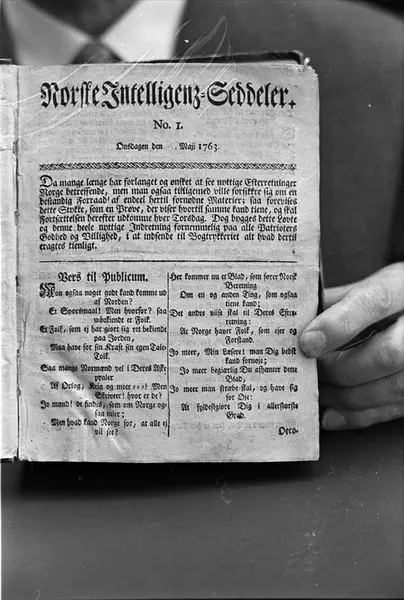 Norske Intelligenz-Seddeler.
No. 1.
Onsdagen den Maji 1763.
Da mange længe har forlanget og ønsket at see nyttige Efterretninger
Norge betreffende, men man ogsaa tillige med ville forsikkre sig om en
bestandig Forraad af endeel hertil fornødne Materier; saa forevises
dette Stykke, som en Prøve, der viser hvortil samme kand tiene, og skal
Fortsættelsen herefter udkomme hver Torsdag. Dog bygges dette Løvte
og denne heele nyttige Indretning fornemmelig paa alle Patrioters
Godhed og Villighed, i at indsende til Bogtrykkeriet alt hvad dertil
eragtes tienligt.
Vers til Publicum.
Mon ogsaa noget godt kand komme ud
af Norden?
Et Spørsmaal! Men hvorfor? saa
ubekiendt et Folk.
Et Folk, som ej har giort sig ret bekiendt
paa Jorden,
Maa have for sin Kraft sin egen Tale-
Tolk.
Saa mange Normænd vel i Deres
Af Orlog, Krig og meer Men
Skrivter! hvor er de?
Jo mand! de findes, som om Norge og-
saa taler;
Men hvad kand Norge for, at alle ej
vil see?
Her kommer nu et Blad, som fører Norsk
Beretning
Om en og anden Ting, som ogsaa
tiene kand;
Det andre viise skal til Deres Efter-
retning:
At Norge haver Folk, som ejer og
Forstand.
Jo meer, Min Læser! man Dig besøkt
kand fornøje;
Jo meer begierlig Du afhænter dette
Blad,
Jo meer man stræbe skal, og have sig
for Øje:
At fyldestgiøre Dig i allerstørste
Grad.